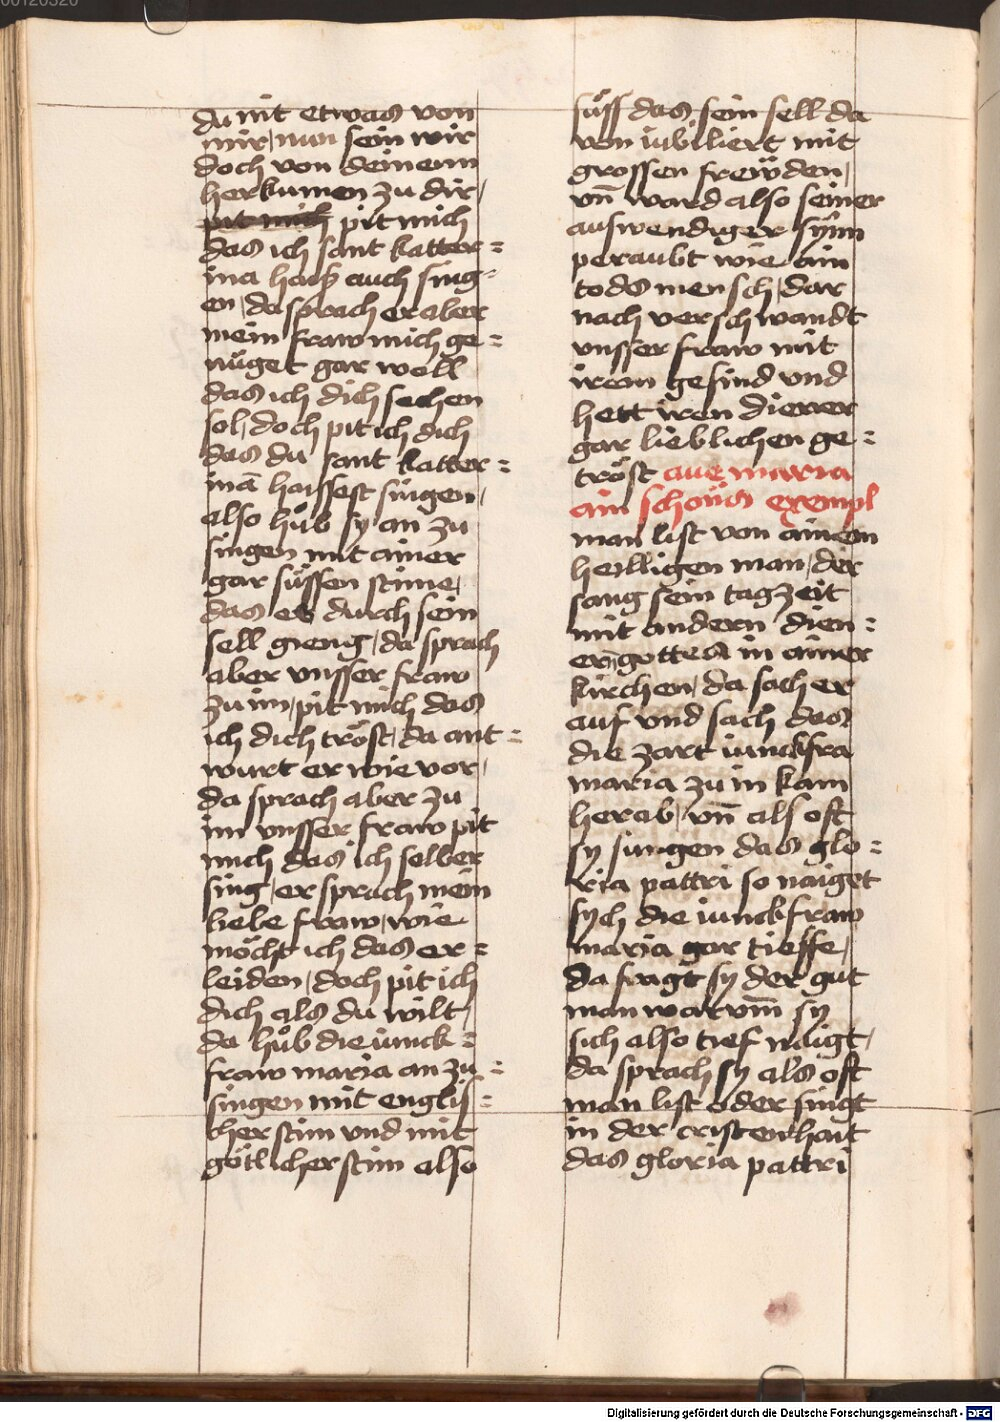 du nit etwas von
mir, nun sein wir
doch von deinenn
herkumen zu dir,
pit mich pit mich
das ich sant katter=
ina haiß auch sing=
en, da sprach er aber
mein fraw mich ge=
nüget gar woll
das ich dich sechen
sol, doch pit ich dich
das du sant katter=
inā haissest singen,
also hůb sy an zu
singen mit ainer
gar süssen stime,
das es durch sein
sell gieng, da sprach
aber vnsser fraw
zu im, pit mich das
ich dich tröst, da ant=
wurt er wie vor,
da sprach aber zu
im vnsser fraw pit
mich das ich selber
sing, er sprach mein
liebe fraw, wie
möcht ich das er=
leiden, doch pit ich
dich als du wilt,
da hůb die iunck=
fraw maria an zu=
singen mit englis=
cher stim vnd mit
götlicher stim also
süss das sein sell da
von iubiliert mit
grossen frewden,
vn̄ ward also seiner
auswendiger synn
peraubt wie ain
tods mensch, dar
nach verschwandt
vnsser fraw mit
irem gesind vnd
hett iren diener
gar lieblichen ge=
tröst aue maria
ain schöns exempl
man list von ainem
heilligen man, der
sang sein tagzeit
mit andern dien=
ern gottes in ainer
kirchen, da sach er
auf vnd sach das
die zart iunckfra
maria zu in kam
herab, vn̄ als oft
sy sungen das glo=
ria pattri so naiget
sych die iunckfraw
maria gar tieffe,
da fragt sy der gut
man warvm̄ sy
sich also tief naigt,
da sprach sy als oft
man list oder singt
in der cristenhait
das gloria pattri
Digitalisierung gefördert durch die Deutsche Forschungsgemeinschaft - DFG